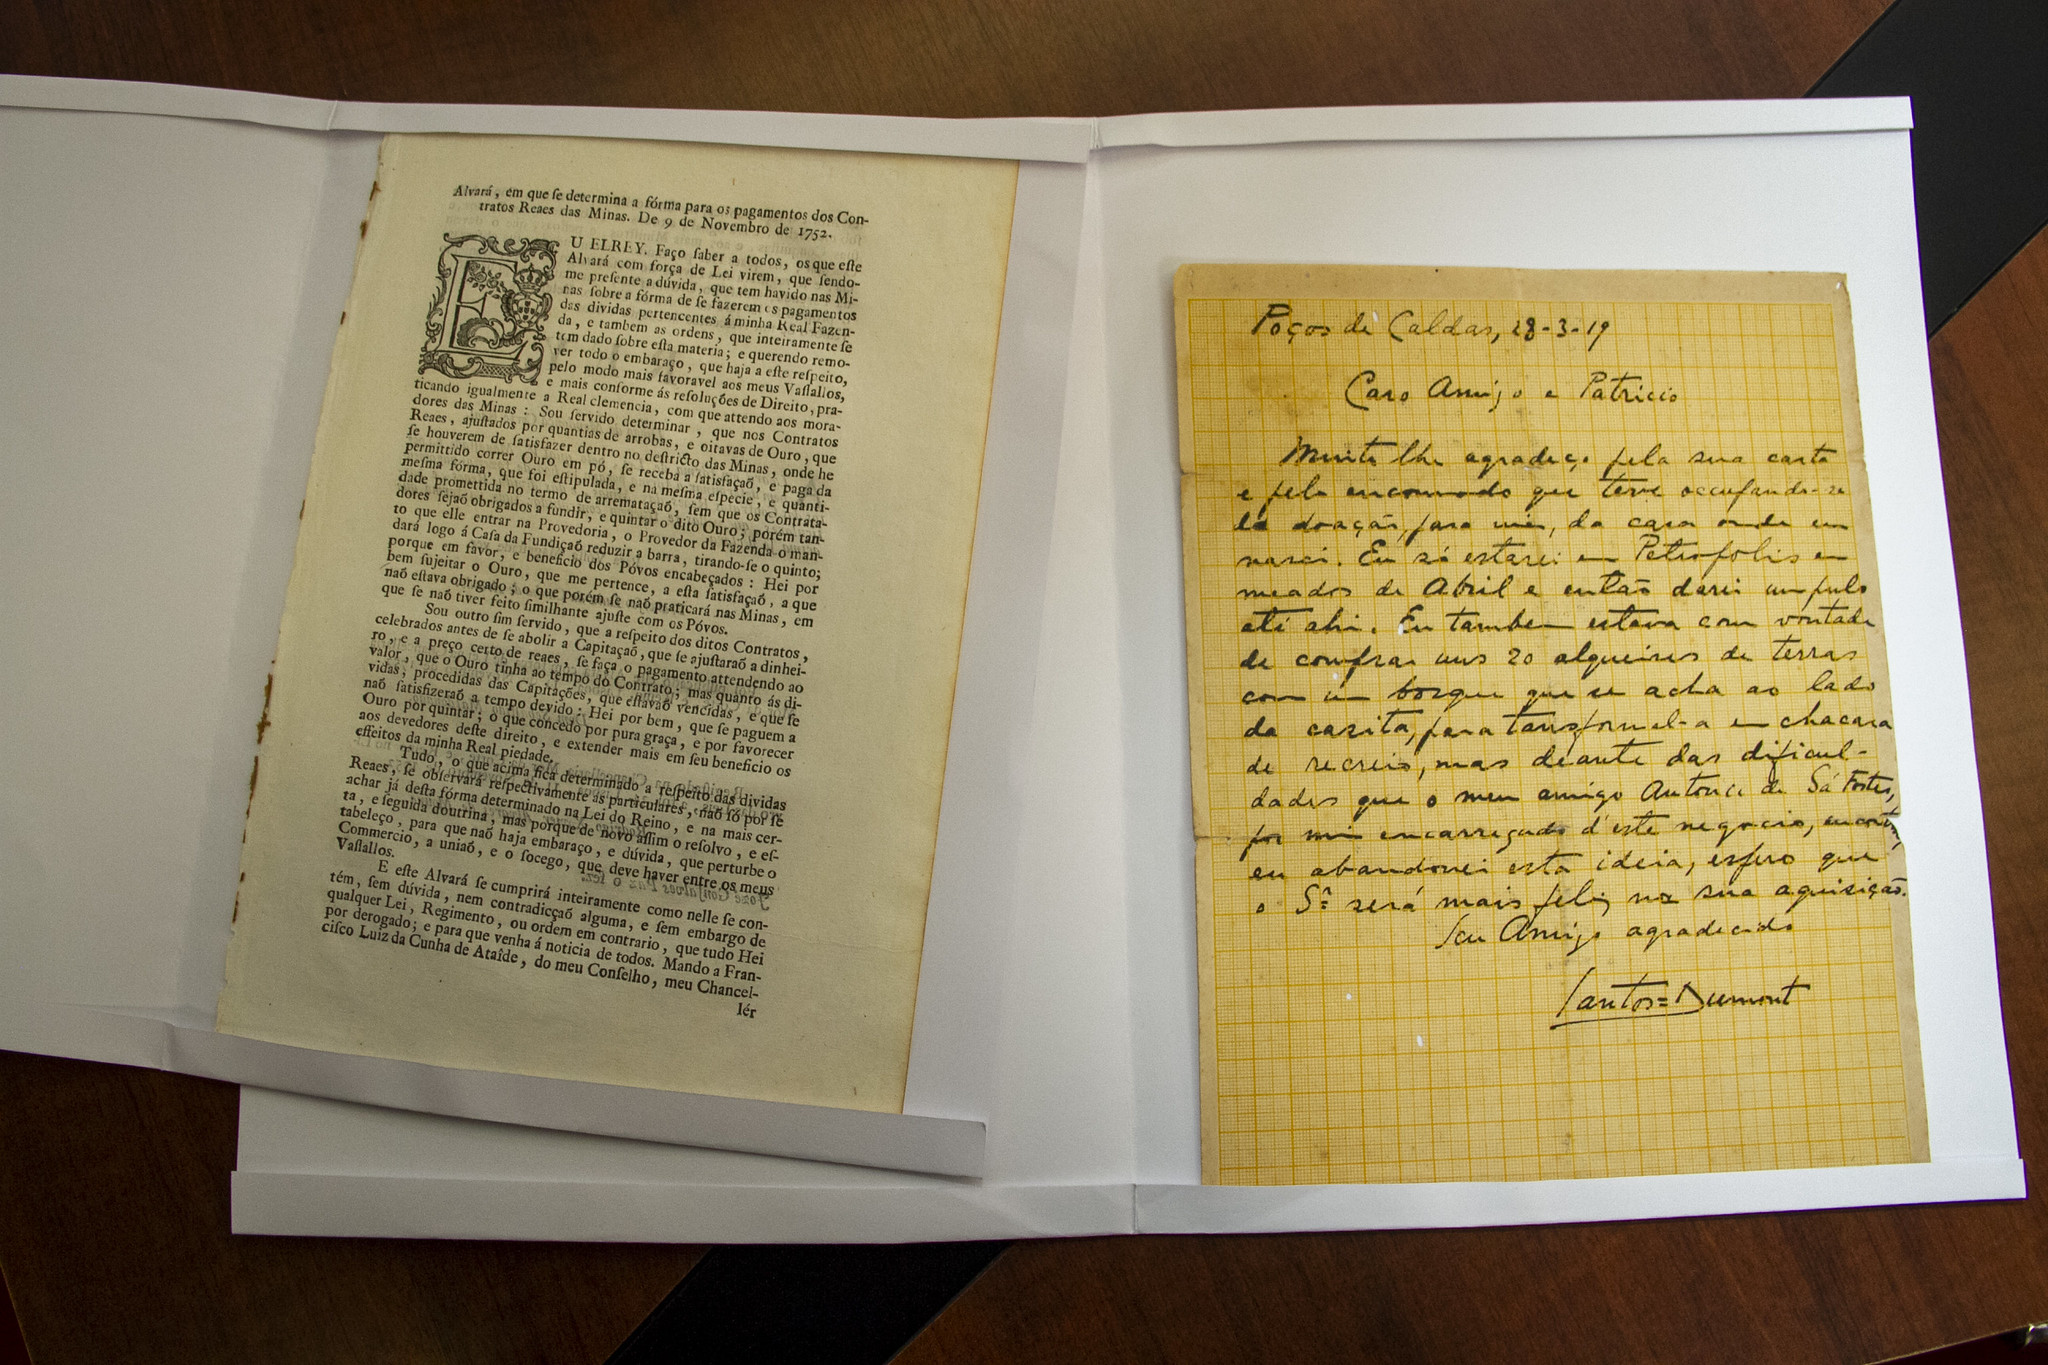 Alvará, em que ſe determina a fórma para os pagamentos dos Con-
tratos Reaes das Minas. De 9 de Novembro de 1752.
EU ELREY. Faço ſaber a todos, os que eſte
Alvará com força de Lei virem, que ſendo-
me preſente a dúvida, que tem havido nas Mi-
nas ſobre a fórma de ſe fazerem os pagamentos
das dividas pertencentes á minha Real Fazen-
da, e tambem as ordens, que inteiramente ſe
tem dado ſobre eſta materia; e querendo remo-
ver todo o embaraço, que haja a eſte reſpeito,
pelo modo mais favoravel aos meus Vaſſallos,
e mais conforme ás reſoluções de Direito, pra-
ticando igualmente a Real clemencia, com que attendo aos mora-
dores das Minas: Sou ſervido determinar, que nos Contratos
Reaes, ajuſtados por quantias de arrobas, e oitavas de Ouro, que
ſe houverem de ſatisfazer dentro no deſtricto das Minas, onde he
permittido correr Ouro em pó, ſe receba a ſatisfaçaõ, e paga da
meſma fórma, que foi eſtipulada, e na meſma eſpecie, e quanti-
dade promettida no termo de arremataçaõ, ſem que os Contrata-
dores ſejaõ obrigados a fundir, e quintar o dito Ouro; porém tan-
to que elle entrar na Provedoria, o Provedor da Fazenda o man-
dará logo á Caſa da Fundiçaõ reduzir a barra, tirando-ſe o quinto;
porque em favor, e beneficio dos Póvos encabeçados: Hei por
bem ſujeitar o Ouro, que me pertence, a eſta ſatisfaçaõ, a que
naõ eſtava obrigado; o que porém ſe naõ praticará nas Minas, em
que ſe naõ tiver feito ſimilhante ajuſte com os Póvos.
Sou outro ſim ſervido, que a reſpeito dos ditos Contratos,
celebrados antes de ſe abolir a Capitaçaõ, que ſe ajuſtaraõ a dinhei-
ro, e a preço certo de reaes, ſe faça o pagamento attendendo ao
valor, que o Ouro tinha ao tempo do Contrato; mas quanto ás di-
vidas, procedidas das Capitações, que eſtavaõ vencidas, e que ſe
naõ ſatisfizeraõ a tempo devido: Hei por bem, que ſe paguem a
Ouro por quintar; o que concedo por pura graça, e por favorecer
aos devedores deſte direito, e extender mais em ſeu beneficio os
effeitos da minha Real piedade.
Tudo, o que acima fica determinado a reſpeito das dividas
Reaes, ſe obſervará reſpectivamente ás particulares, naõ ſó por ſe
achar já deſta fórma determinado na Lei do Reino, e na mais cer-
ta, e ſeguida doutrina, mas porque de novo aſſim o reſolvo, e eſ-
tabeleço, para que naõ haja embaraço, e dúvida, que perturbe o
Commercio, a uniaõ, e o ſocego, que deve haver entre os meus
Vaſſallos.
E eſte Alvará ſe cumprirá inteiramente como nelle ſe con-
tém, ſem dúvida, nem contradicçaõ alguma, e ſem embargo de
qualquer Lei, Regimento, ou ordem em contrario, que tudo Hei
por derogado; e para que venha á noticia de todos. Mando a Fran-
ciſco Luiz da Cunha de Ataîde, do meu Conſelho, meu Chancel-
lér
Poços de Caldas, 28-3-19
Caro Amigo e Patricio
Muito lhe agradeço pela sua carta
e pelo encommodo que teve occupando-se
da doação, para mim, da casa onde eu
nasci. Eu só estarei em Petropolis em
meados de Abril e então darei um pulo
até ahi. Eu tambem estava com vontade
de comprar uns 20 alqueires de terras
com um bosque que se acha ao lado
da casita, para transformal-a em chacara
de recreio, mas deante das dificul-
dades que o meu amigo Antonio de Sá Fortes,
por mim encarregado d'este negocio, encontrou,
eu abandonei esta ideia, espero que
o Sr. será mais feliz na sua aquisição.
Seu Amigo agradecido
Santos=Dumont